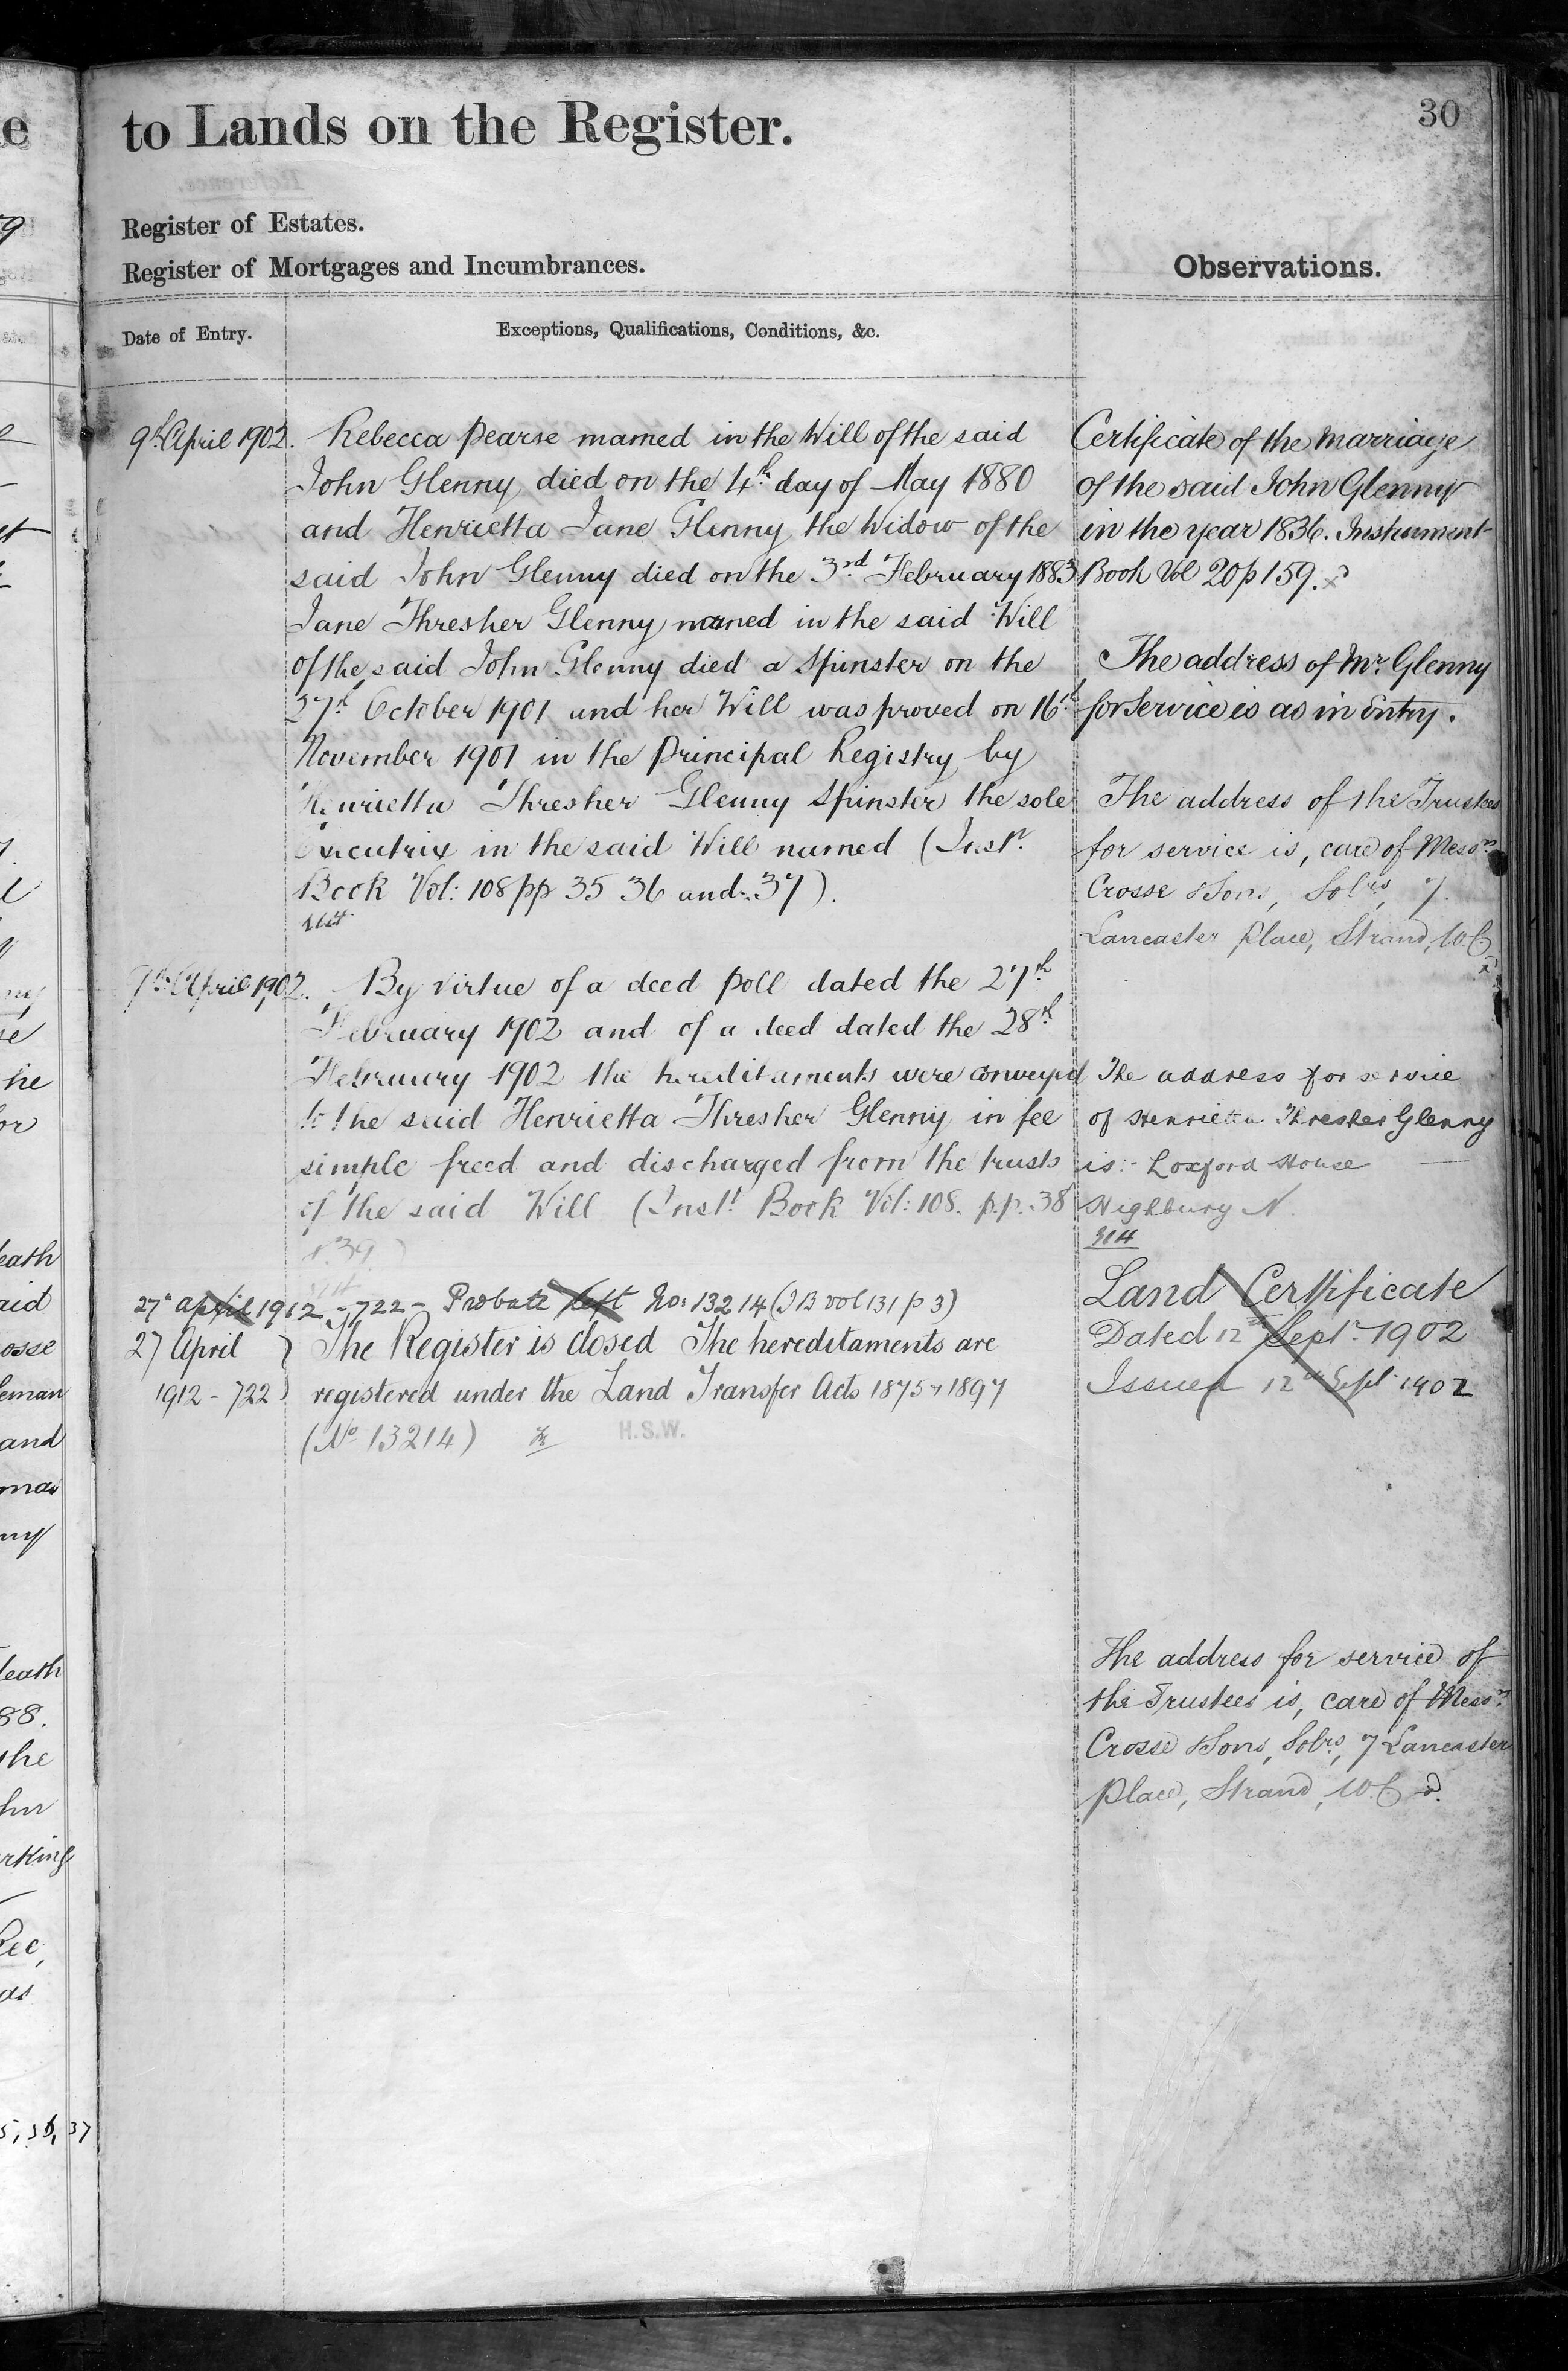 to Lands on the Register.
30
Register of Estates.
Register of Mortgages and Incumbrances.
Observations.
Date of Entry.
Exceptions, Qualifications, Conditions, &c.
9th April 1902.
Rebecca Pearse named in the Will of the said
John Glenny died on the 4th day of May 1880
and Henrietta Jane Glenny the Widow of the
said John Glenny died on the 3rd February 1883
Jane Thresher Glenny named in the said Will
of the said John Glenny died a Spinster on the
27th October 1901 and her Will was proved on 16th
November 1901 in the Principal Registry by
Henrietta Thresher Glenny Spinster the sole
Executrix in the said Will named (Inst.
Book Vol: 108 pp 35 36 and 37).
9th April 1902.
By virtue of a deed poll dated the 27th
February 1902 and of a deed dated the 28th
February 1902 the hereditaments were conveyed
to the said Henrietta Thresher Glenny in fee
simple freed and discharged from the trusts
of the said Will (Inst. Book Vol: 108. p.p. 38
& 39)
27th April 1912 - 722 - Probate left No: 13214 (IB vol 131 p 3)
27 April
1912 - 722
The Register is closed The hereditaments are
registered under the Land Transfer Acts 1875 & 1897
(No 13214)
H.S.W.
Certificate of the Marriage
of the said John Glenny
in the year 1836. Instrument
Book Vol 20 p 159.
The address of Mr. Glenny
for Service is as in Entry.
The address of the Trustees
for service is, care of Messrs
Crosse & Sons, Solrs, 7
Lancaster Place, Strand, W.C.
The address for service
of Henrietta Thresher Glenny
is:- Loxford House
Highbury N.
Land Certificate
Dated 12th Sept. 1902
Issued 12th Sept. 1902
The address for service of
the Trustees is, care of Messrs
Crosse & Sons, Solrs, 7 Lancaster
Place, Strand, W.C.